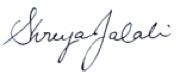 Shreya Jalali